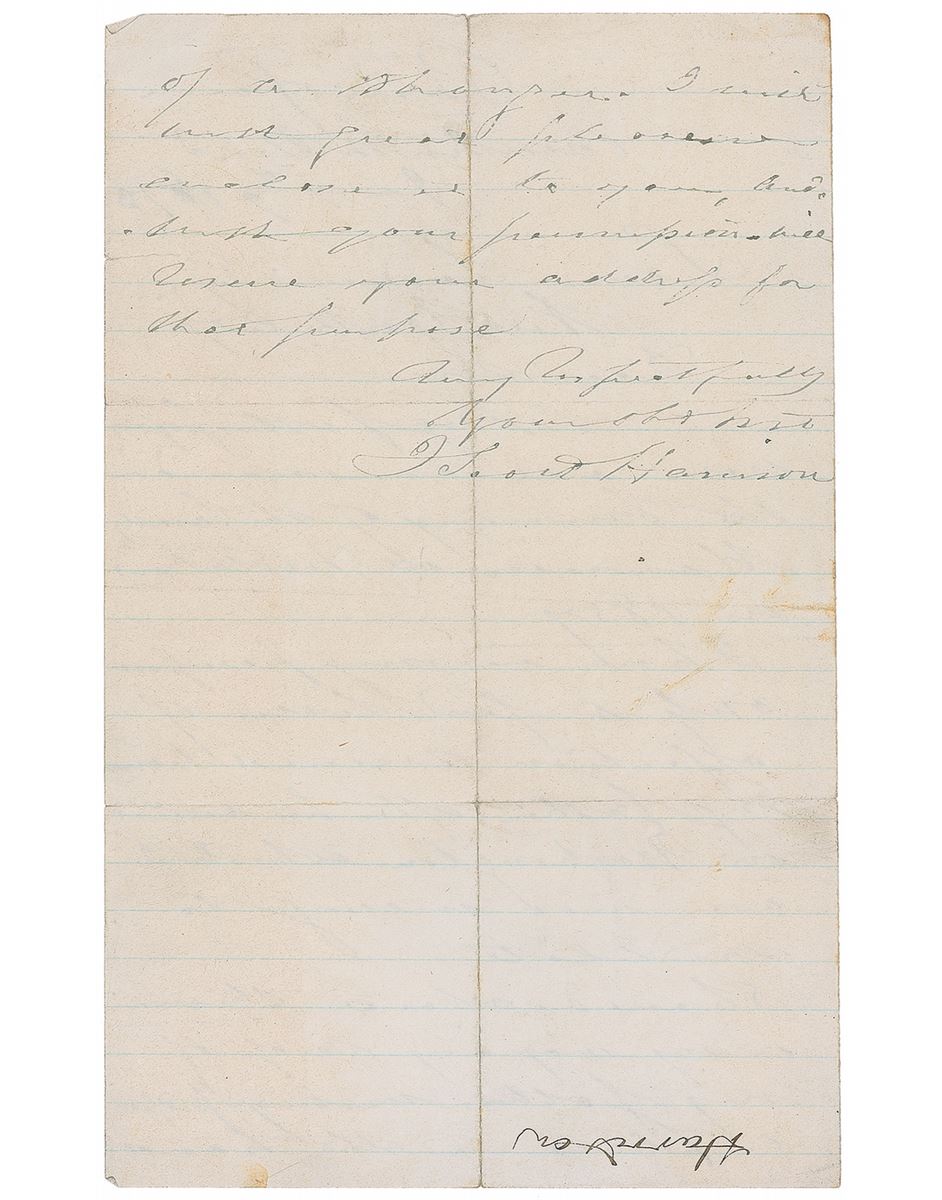 of a stranger. I will
with great pleasure
enclose it to you, and
with your permission will
reserve your address for
that purpose
Very Respectfully
Your Obt Svt
J Scott Harrison
Harrison